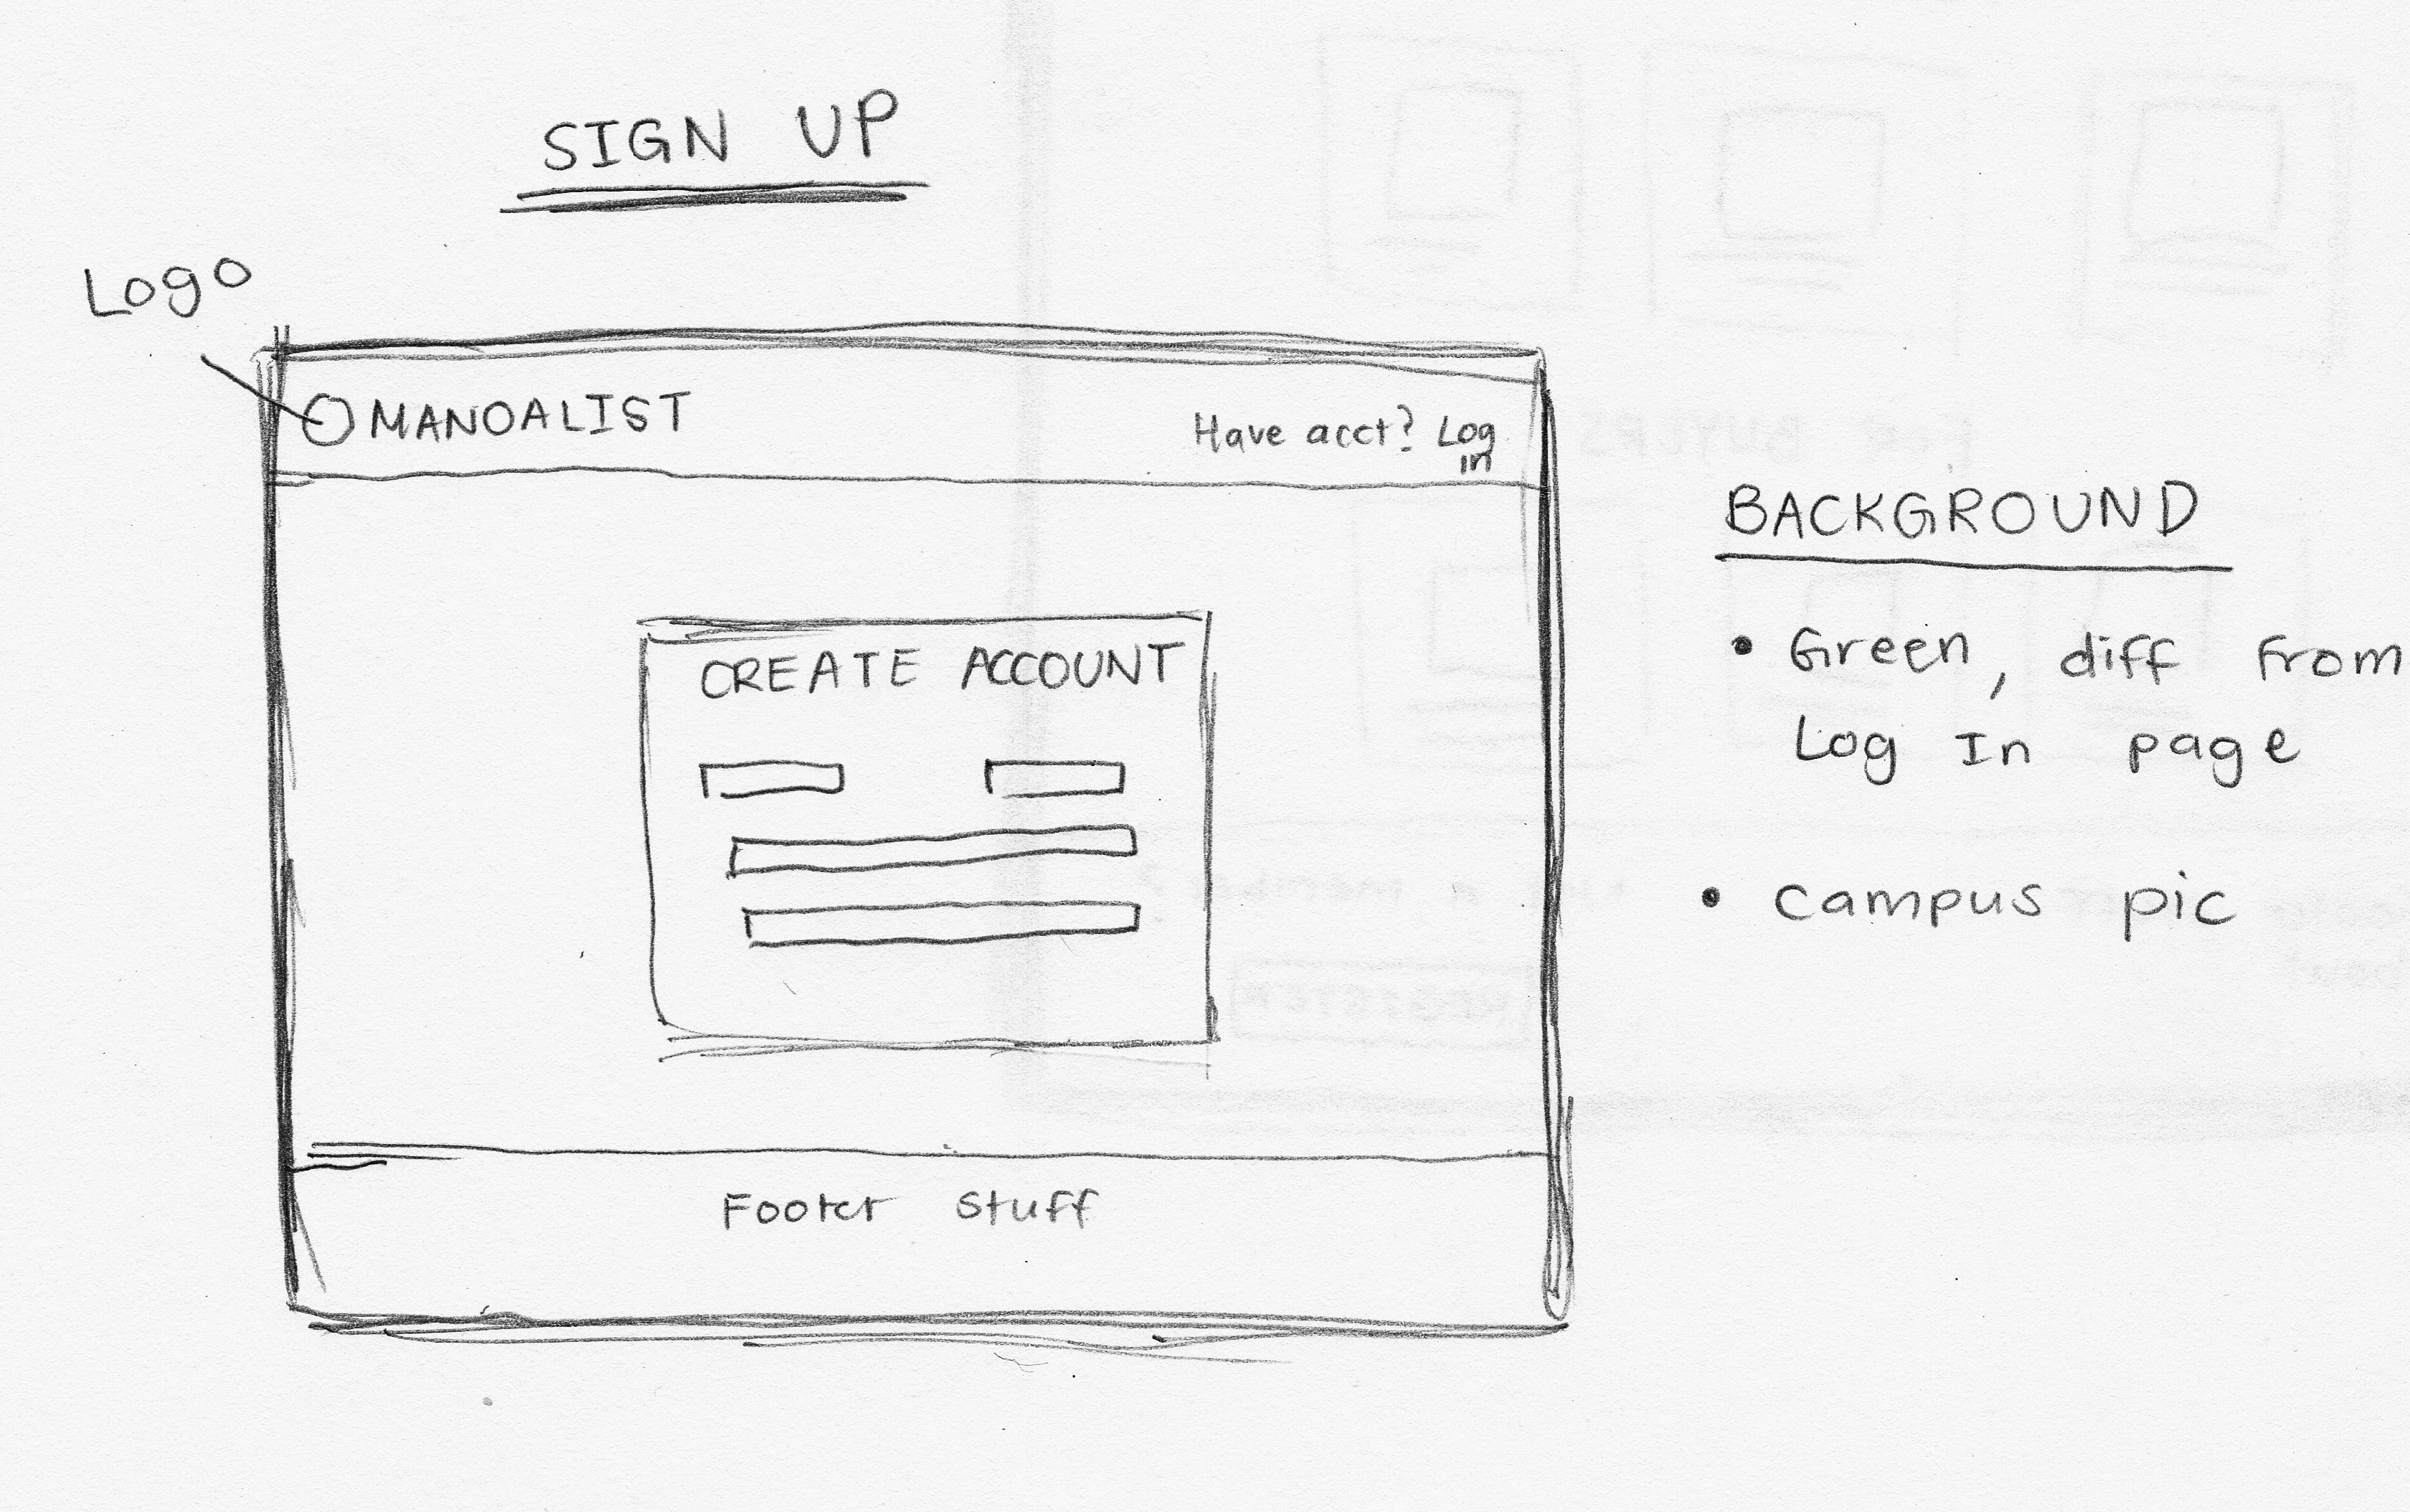 SIGN UP
Logo
MANOALIST
Have acct? Log
in
CREATE ACCOUNT
Footer Stuff
BACKGROUND
• Green, diff from
Log In page
• campus pic